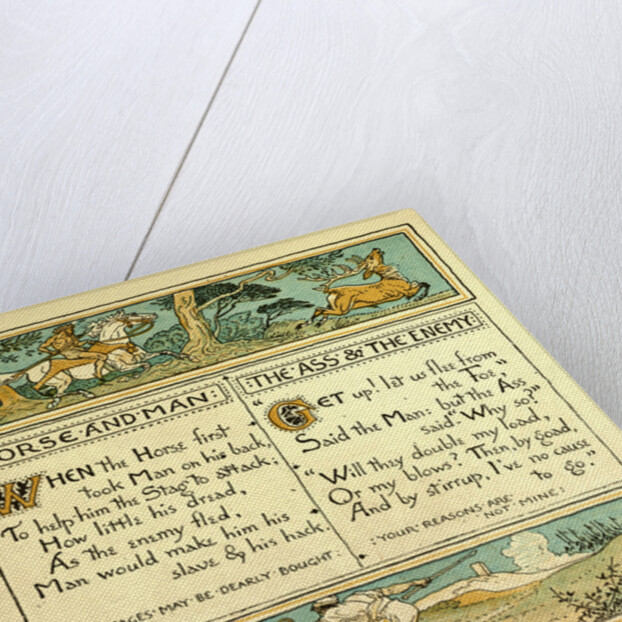 ORSE·AND·MAN:
WHEN the Horse first
took Man on his back,
To help him the Stag to attack;
How little his dread,
As the enemy fled,
Man would make him his
slave & his hack.
AGES·MAY·BE·DEARLY BOUGHT:
:THE·ASS·&·THE·ENEMY:
GET up! let us flee from
the Foe,"
Said the Man: but the Ass
said, "Why so?"
"Will they double my load,
Or my blows? Then, by goad,
And by stirrup, I've no cause
to go."
:YOUR·REASONS·ARE·
NOT·MINE: